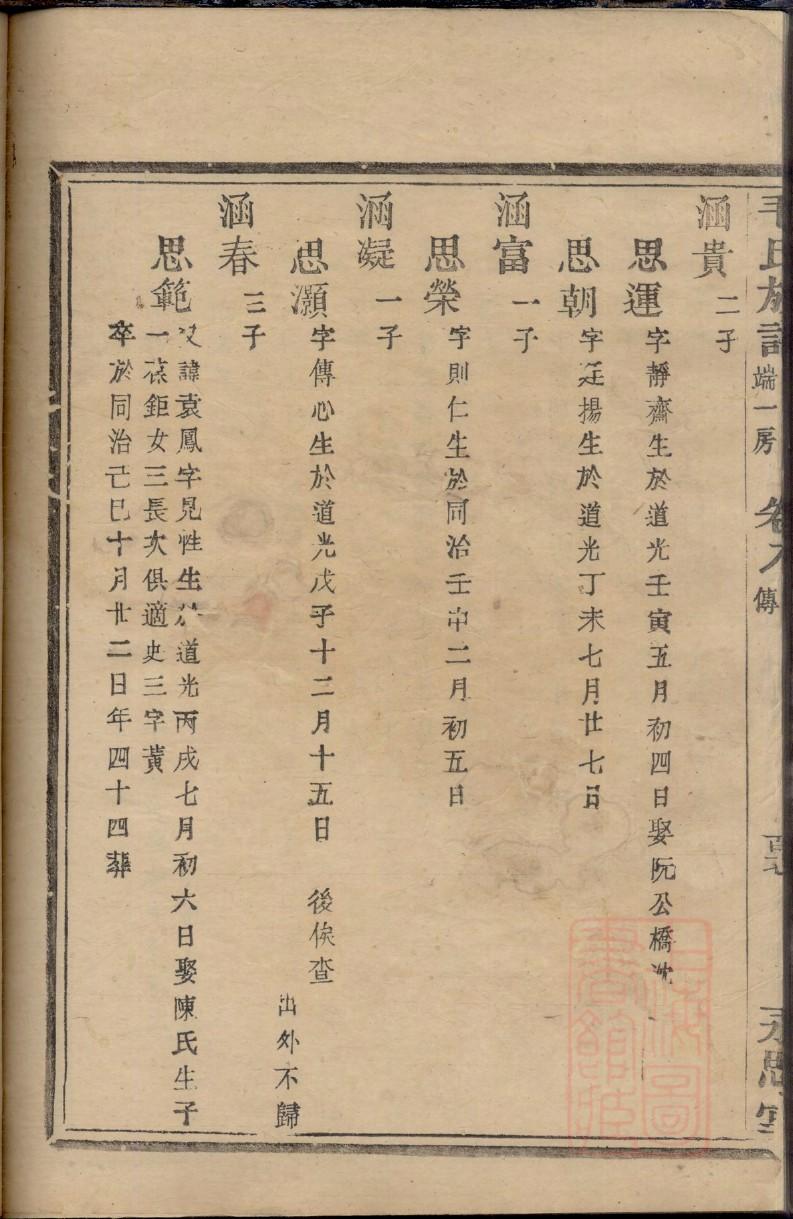 毛氏族譜 端一房 卷八 傳 永思堂
涵貴 二子
思運 字靜齋生於道光壬寅五月初四日娶阮公橋沈
思朝 字廷揚生於道光丁未七月廿七日
涵富 一子
思榮 字則仁生於同治壬申二月初五日
涵凝 一子
思灝 字傳心生於道光戊子十二月十五日 後俟查
出外不歸
涵春 三子
思範 又諱袁鳳字見性生於道光丙戌七月初六日娶陳氏生子
一葆鉅女三長次俱適史三字黃
卒於同治己巳十月廿二日年四十四葬
上海圖書館藏